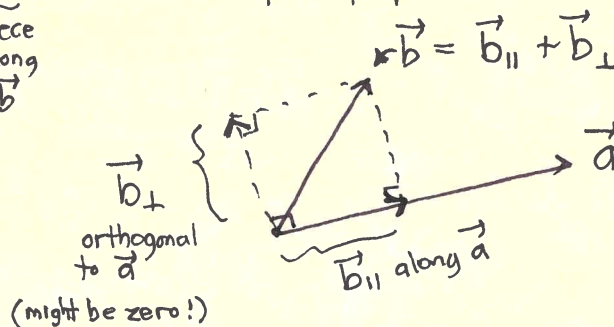 ong
b⃗
b⃗ = b⃗∥ + b⃗⊥
a⃗
b⃗⊥
orthogonal
to a⃗
(might be zero!)
b⃗∥ along a⃗